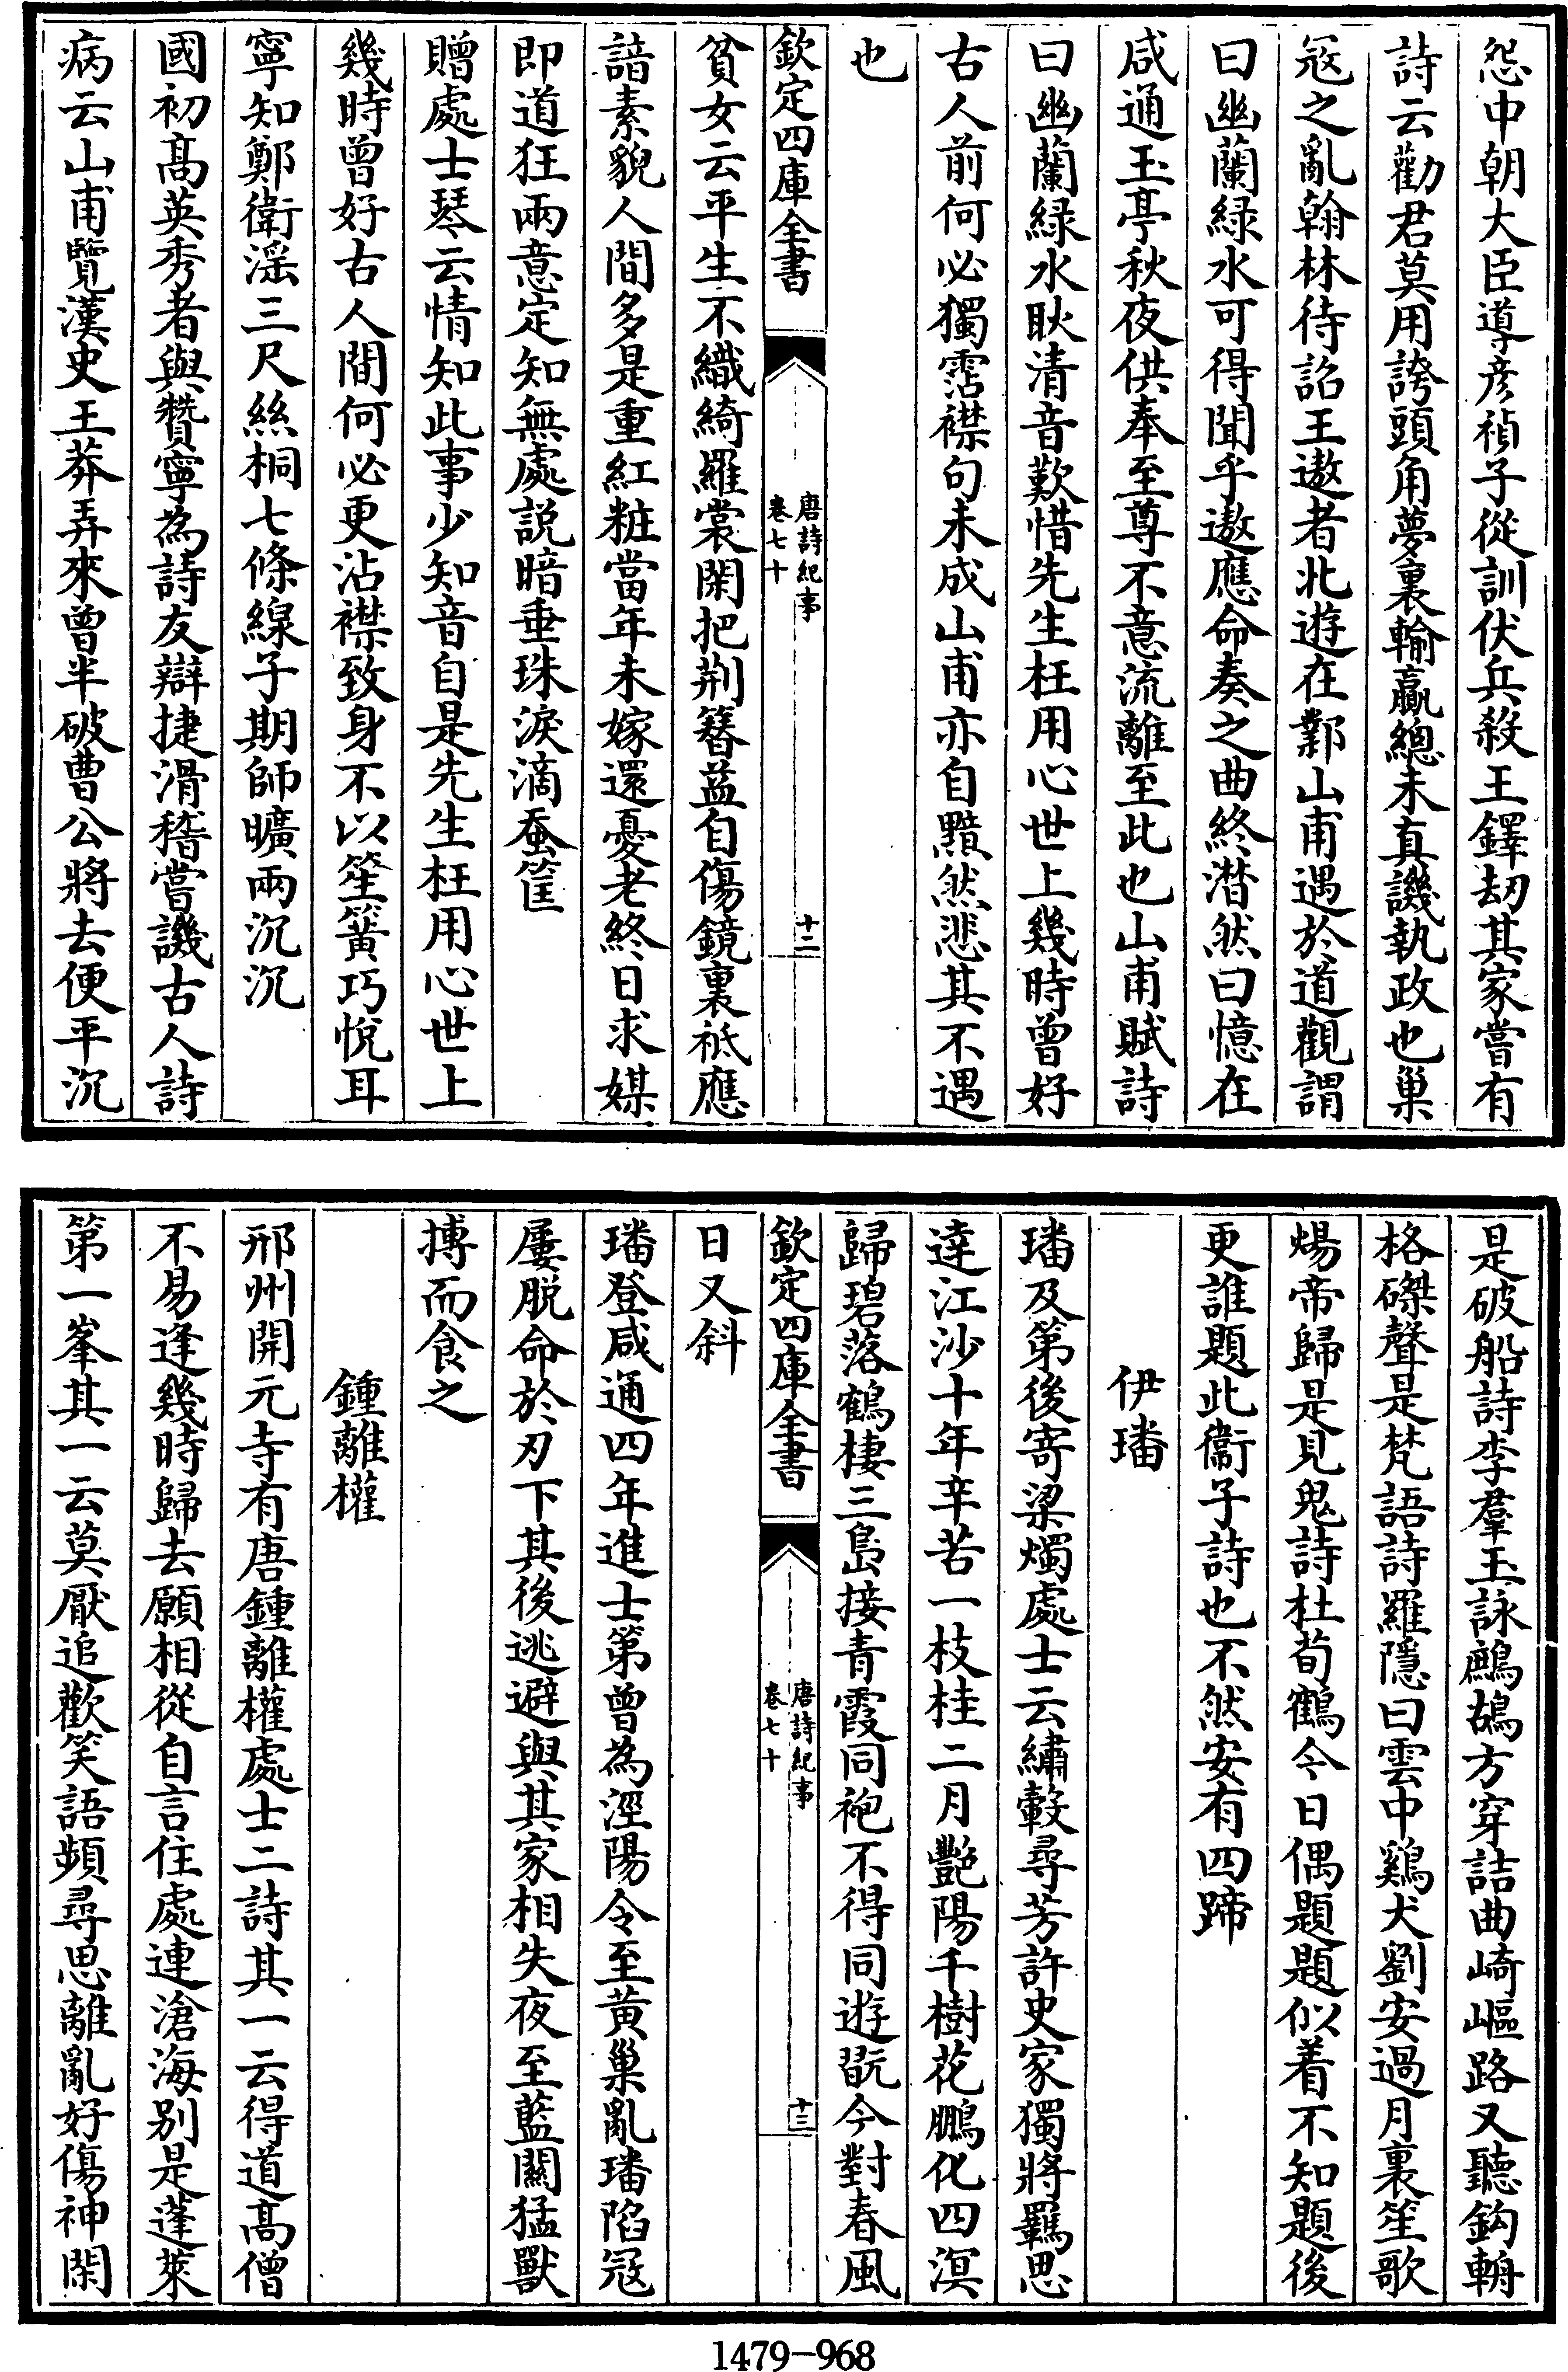 怨中朝大臣導彦禎子從訓伏兵殺王鐸刼其家嘗有
詩云勸君莫用誇頭角夢裏輸贏總未真譏執政也巢
宼之亂翰林待詔王遨者北遊在鄴山甫遇於道觀謂
曰幽蘭緑水可得聞乎遨應命奏之曲終潸然曰憶在
咸通玉亭秋夜供奉至尊不意流離至此也山甫賦詩
曰幽蘭緑水耿清音歎惜先生枉用心世上幾時曾好
古人前何必獨霑襟句未成山甫亦自黯然悲其不遇
也
欽定四庫全書
唐詩紀事
卷七十
十二
貧女云平生不織綺羅裳閑把荆簪益自傷鏡裏祗應
諳素貌人間多是重紅粧當年未嫁還憂老終日求媒
即道狂兩意定知無處説暗垂珠淚滴蚕筐
贈處士琴云情知此事少知音自是先生枉用心世上
幾時曾好古人間何必更沾襟致身不以笙簧巧悅耳
寧知鄭衛滛三尺絲桐七條線子期師曠兩沉沉
國初髙英秀者與贊寧為詩友辯捷滑稽嘗譏古人詩
病云山甫覽漢史王莽弄來曾半破曹公將去便平沉
是破船詩李羣玉詠鷓鴣方穿詰曲崎嶇路又聽鈎輈
格磔聲是梵語詩羅隱曰雲中鷄犬劉安過月裏笙歌
煬帝歸是見鬼詩杜荀鶴今日偶題題似着不知題後
更誰題此衞子詩也不然安有四蹄
伊璠
璠及第後寄梁燭處士云繡轂尋芳許史家獨將羈思
達江沙十年辛苦一枝桂二月艷陽千樹花鵬化四溟
歸碧落鶴棲三島接青霞同袍不得同遊翫今對春風
日又斜
欽定四庫全書
唐詩紀事
卷七十
十三
璠登咸通四年進士第曾為涇陽令至黄巢亂璠陷冦
屢脱命於刃下其後逃避與其家相失夜至藍關猛獸
搏而食之
鍾離權
邢州開元寺有唐鍾離權處士二詩其一云得道髙僧
不易逢幾時歸去願相從自言住處連滄海别是蓬萊
第一峯其一云莫厭追歡笑語頻尋思離亂好傷神閑
1479-968